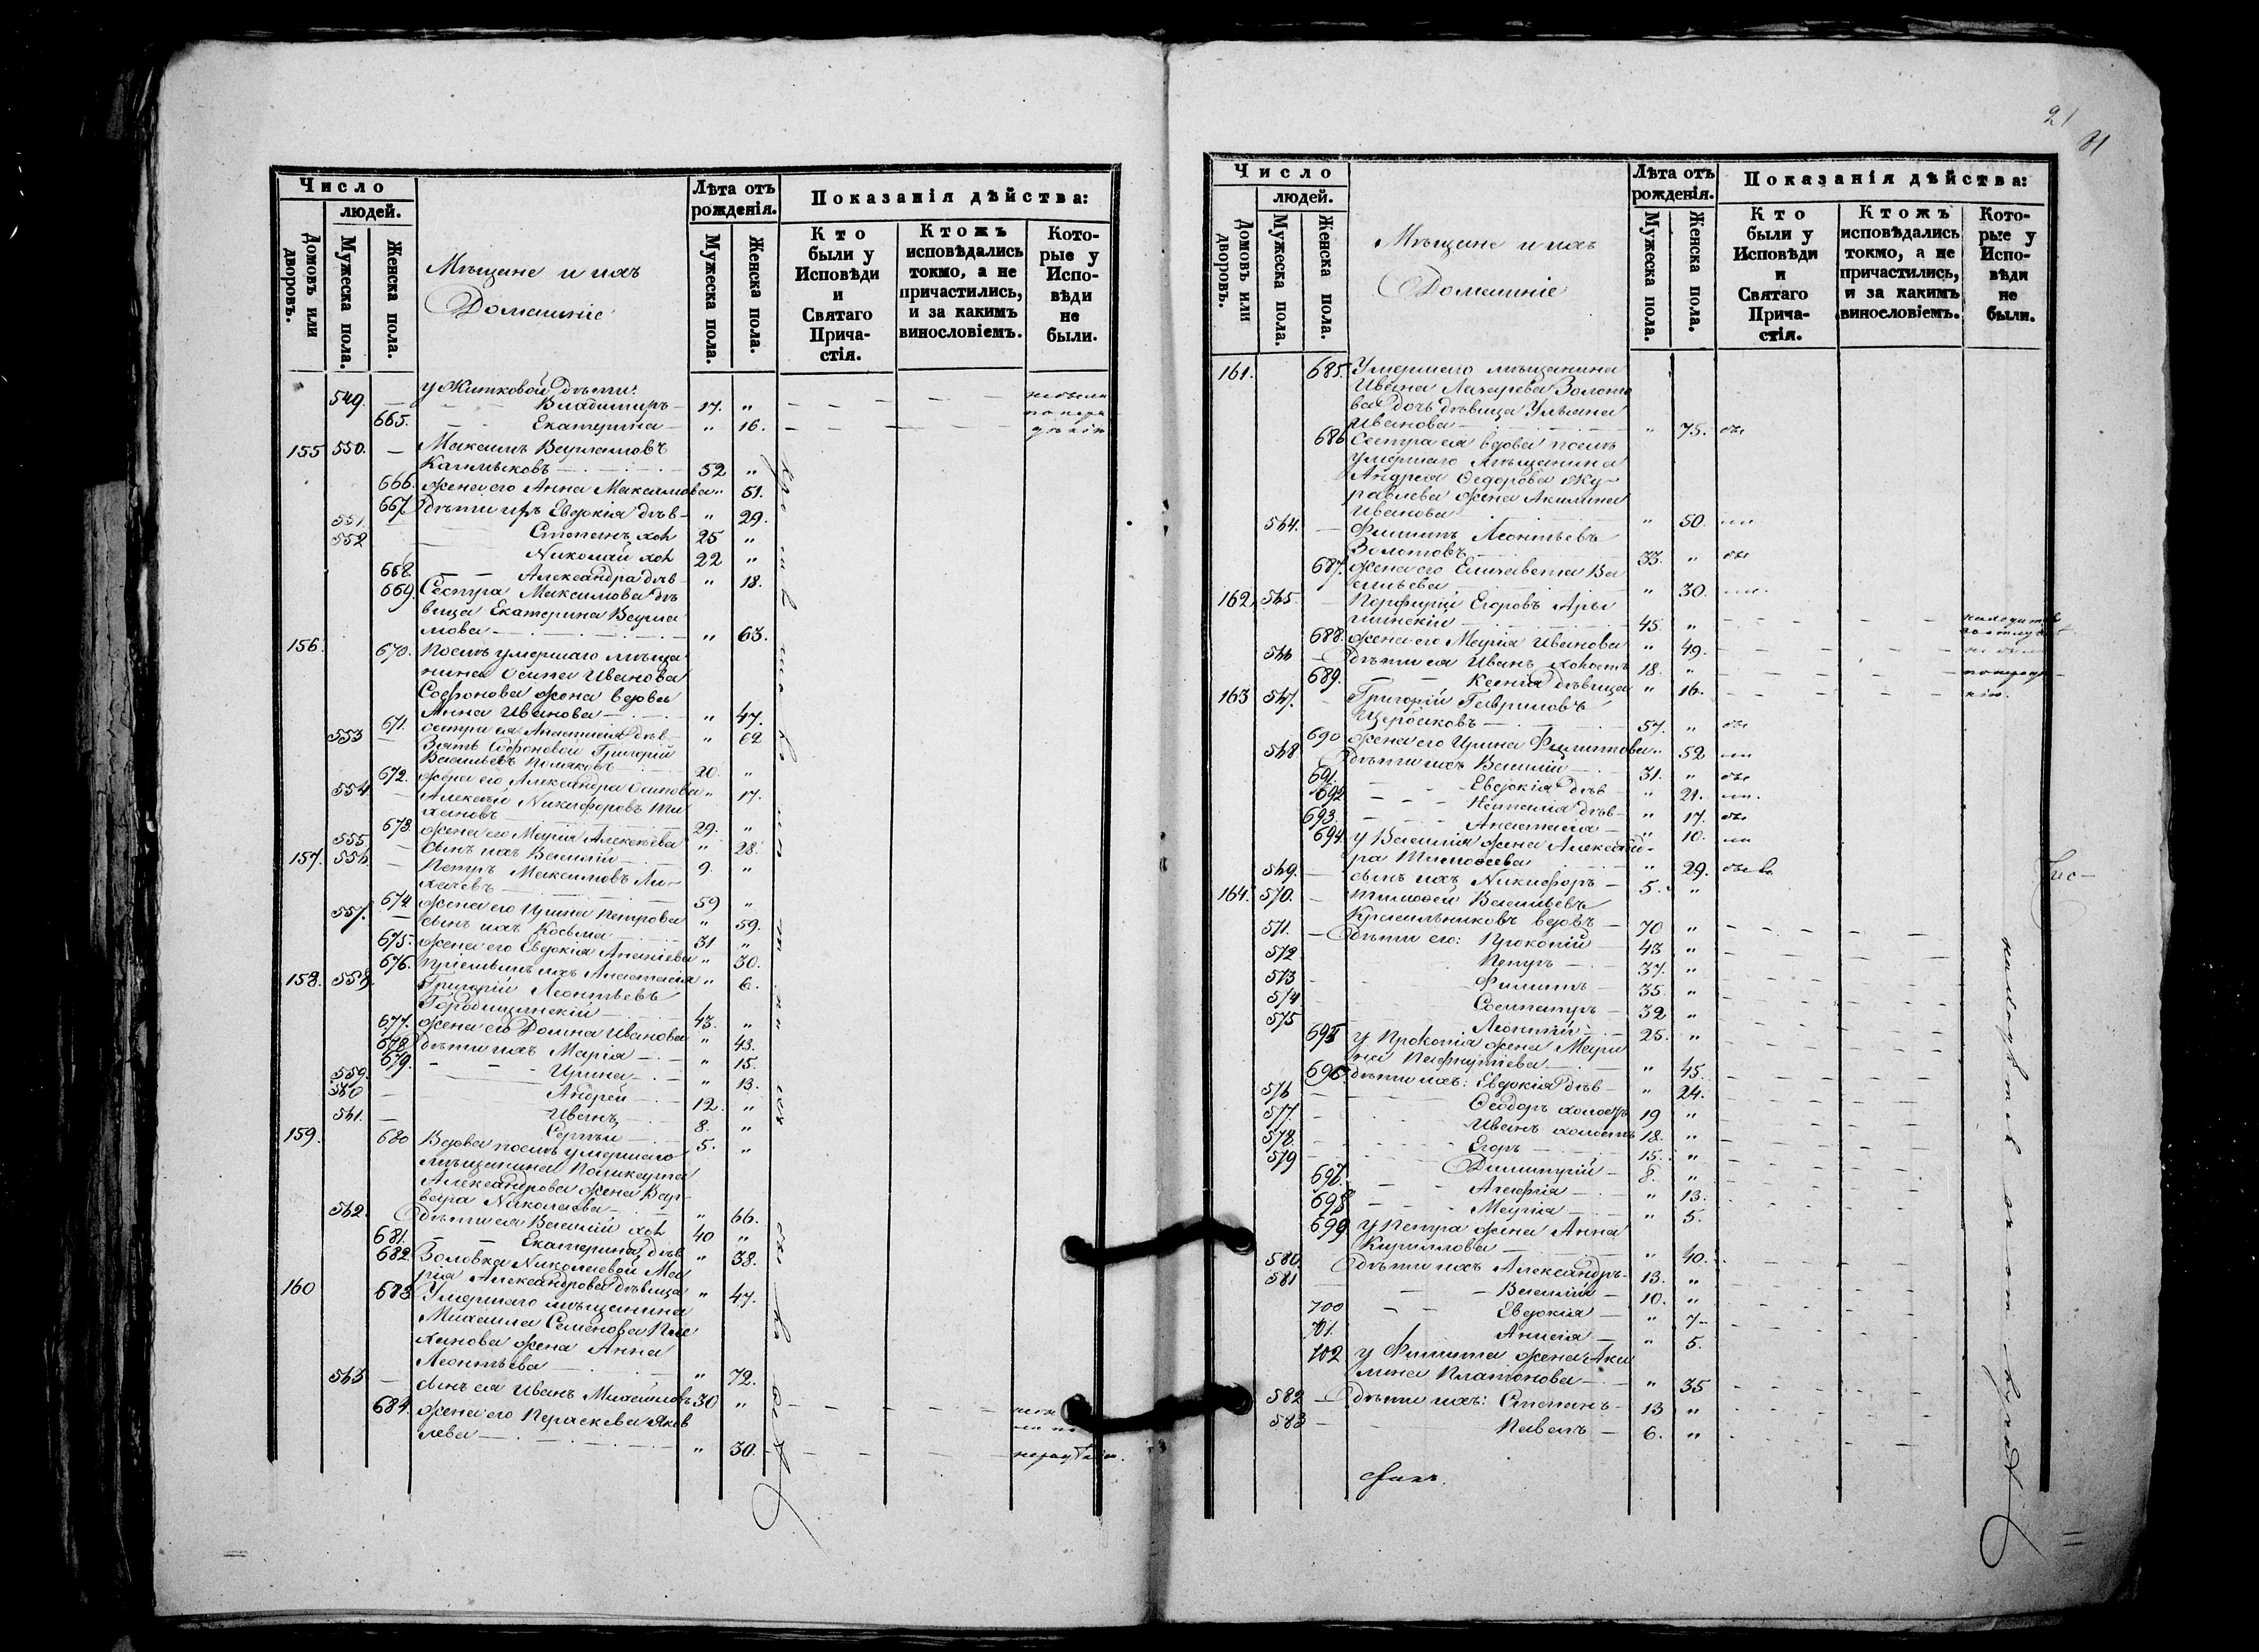 Число
людей.
Домовъ или дворовъ.
Мужеска пола.
Женска пола.
Мѣщане и ихъ
Домашніе
Лѣта отъ
рожденія.
Мужеска пола.
Женска пола.
Показанія дѣйства:
Кто
были у
Исповѣди
и
Святаго
Прича-
стія.
Ктожъ
исповѣдались
токмо, а не
причастились,
и за какимъ
винословіемъ.
Кото-
рые у
Испо-
вѣди
не
были.
у Житковой дѣти:
549. — Владимиръ — 17. "
665. Екатерина — " 16.
155 550. — Максимъ Варламовъ
Калмыковъ — 52 "
666. жена его Анна Максимова " 51.
667. дѣти ихъ Евдокія дѣв. " 29.
551. Степанъ хол 25 "
552 Николай хол 22 "
668. Александра дѣв " 18.
669. Сестра Максимова дѣ
вица Екатерина Варла
мова — " 63.
156. 670. Послѣ умершаго мѣща
нина Осипа Иванова
Софонова жена вдова
Анна Иванова — " 47.
671. сестра ея Анастасія дѣв. " 62
553 — Зять Софоновой Григорій
Васильевъ Поляковъ — 20. "
672. жена его Александра Осипова " 17.
554 — Алексѣй Никифоровъ Ти
хановъ — 29. "
673. жена его Марія Алексѣева " 28.
555. — сынъ ихъ Василій — 9. "
157. 556. — Петръ Максимовъ Ли-
хачевъ — 59 "
674 жена его Ирина Петрова " 59.
557. — сынъ ихъ Косьма — 31 "
675. жена его Евдокія Ананіева " 30.
676. пріемышъ ихъ Анастасія " 6.
158. 558. Григорій Леонтьевъ
Городищинскій — 43. "
677. жена его Домна Иванова " 43.
678. дѣти ихъ Марія — " 15.
679. Ирина — " 13.
559. Андрей — 12. "
560 — Иванъ — 8. "
561. — Сергѣй — 5. "
159. 680 Вдова послѣ умершаго
мѣщанина Поликарпа
Александрова жена Вар-
вара Николаева — " 66.
562. Дѣти ея Василій хол 40 "
681. Екатерина дѣв " 38.
682. Золовка Николаевой Ма
рія Александрова дѣвица " 47.
160 683. Умершаго мѣщанина
Михаила Семенова Пле
ханова жена Анна
Леонтьева — " 72.
563 — сынъ ея Иванъ Михайловъ 30 "
684. жена его Параскева Яков
лева — " 30.
21
Число
людей.
Домовъ или дворовъ.
Мужеска пола.
Женска пола.
Мѣщане и ихъ
Домашніе
Лѣта отъ
рожденія.
Мужеска пола.
Женска пола.
Показанія дѣйства:
Кто
были у
Исповѣди
и
Святаго
Прича-
стія.
Ктожъ
исповѣдались
токмо, а не
причастились,
и за какимъ
винословіемъ.
Кото-
рые у
Испо-
вѣди
не
были.
161. 685. Умершаго мѣщанина
Ивана Лазарева Золото
ва дочь дѣвица Ульяна
Иванова — " 75.
686 Сестра ея вдова послѣ
умершаго мѣщанина
Андрея Федорова Жу-
равлева жена Акилина
Иванова " 50.
564. — Филиппъ Леонтьевъ
Золотовъ — 33. "
687. жена его Елизавета Ва
сильева — " 30.
162. 565. Порфирій Егоровъ Ары
шинскій — 45. "
688. жена его Марія Иванова " 49.
566 — дѣти ея Иванъ холостъ 18. "
689. Ксенія дѣвица " 16.
163 567. — Григорій Гавриловъ
Щербаковъ — 57. "
690 жена его Ирина Филиппова " 52
568 Дѣти ихъ Василій 31. "
691. Евдокія дѣв " 21.
692 Наталія дѣв " 17.
693. Анастасія — " 10.
694. у Василія жена Александ-
ра Тимофеева " 29.
569. — сынъ ихъ Никифоръ — 5. "
164. 570. — Тимофей Васильевъ
Красильниковъ вдовъ — 70 "
571. — Дѣти его: Прокопій 43 "
572 Петръ — 37. "
573 — Филиппъ — 35. "
574 Сосипатръ — 32 "
575 Леонтій — 25. "
695 у Прокопія жена Мари
на Пафнутіева — " 45.
696 дѣти ихъ: Евдокія дѣв — " 24.
576 Феодоръ холостъ 19 "
577 Иванъ холостъ 18. "
578. Егоръ — 15. "
579 Димитрій — 8. "
697. Агафія — " 13.
698 Марія — " 5.
699 у Петра жена Анна
Кирилова — " 40.
580. Дѣти ихъ Александръ — 13. "
581 Василій — 10. "
700 Евдокія — " 7
701. Анисія — " 5.
702 у Филиппа жена Аки
лина Платонова — " 35
582 — Дѣти ихъ: Степанъ — 13 "
583 — Павелъ — 6. "